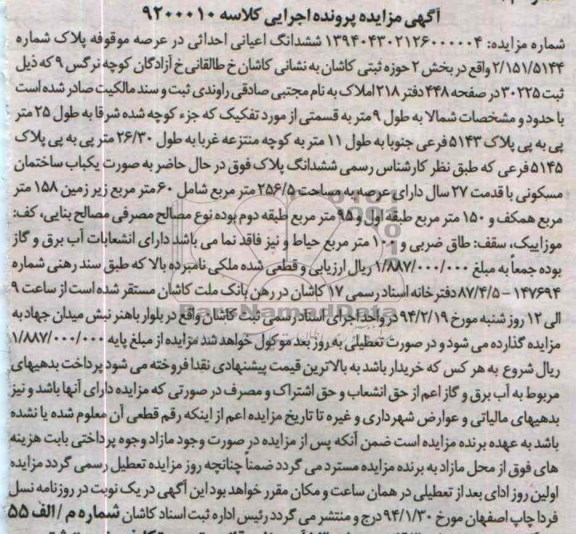 آگهی مزایده پرونده اجرایی کلاسه ۹۲۰۰۰۱۰
شماره مزایده: ۱۳۹۴۰۴۳۰۲۱۲۶۰۰۰۰۰۴ ششدانگ اعیانی احداثی در عرصه موقوفه پلاک شماره
۲/۱۵۱/۵۱۴۴ واقع در بخش ۲ حوزه ثبتی کاشان به نشانی کاشان خ طالقانی خ آزادگان کوچه نرگس ۹ که ذیل
ثبت ۳۰۲۲۵ در صفحه ۴۴۸ دفتر ۲۱۸ املاک به نام مجتبی صادقی راوندی ثبت و سند مالکیت صادر شده است
با حدود و مشخصات شمالا به طول ۹ متر به قسمتی از مورد تفکیک که جزء کوچه شده شرقا به طول ۲۵ متر
پی به پی پلاک ۵۱۴۳ فرعی جنوبا به طول ۱۱ متر به کوچه منتزعه غربا به طول ۲۶/۳۰ متر پی به پی پلاک
۵۱۴۵ فرعی که طبق نظر کارشناس رسمی ششدانگ پلاک فوق در حال حاضر به صورت یکباب ساختمان
مسکونی با قدمت ۲۷ سال دارای عرصه به مساحت ۲۵۶/۵ متر مربع شامل ۶۰ متر مربع زیر زمین ۱۵۸ متر
مربع همکف و ۱۵۰ متر مربع طبقه اول و ۹۵ متر مربع طبقه دوم بوده نوع مصالح مصرفی مصالح بنایی، کف:
موزاییک، سقف: طاق ضربی و ۱۰۰ متر مربع حیاط و نیز فاقد نما می باشد دارای انشعابات آب برق و گاز
بوده جمعاً به مبلغ ۱/۸۸۷/۰۰۰/۰۰۰ ریال ارزیابی و قطعی شده ملکی نامبرده بالا که طبق سند رهنی شماره
۱۴۷۶۹۴ – ۸۷/۴/۵ دفترخانه اسناد رسمی ۱۷ کاشان در رهن بانک ملت کاشان مستقر شده است از ساعت ۹
الی ۱۲ روز شنبه مورخ ۹۴/۲/۱۹ در واحد اجرای اسناد رسمی ثبت کاشان واقع در بلوار باهنر نبش میدان جهاد به
مزایده گذارده می شود و در صورت تعطیلی به روز بعد موکول خواهد شد مزایده از مبلغ پایه ۱/۸۸۷/۰۰۰/۰۰۰
ریال شروع به هر کس که خریدار باشد به بالاترین قیمت پیشنهادی نقدا فروخته می شود پرداخت بدهیهای
مربوط به آب برق و گاز اعم از حق انشعاب و حق اشتراک و مصرف در صورتی که مزایده دارای آنها باشد و نیز
بدهیهای مالیاتی و عوارض شهرداری و غیره تا تاریخ مزایده اعم از اینکه رقم قطعی آن معلوم شده یا نشده
باشد به عهده برنده مزایده است ضمن آنکه پس از مزایده در صورت وجود مازاد وجوه پرداختی بابت هزینه
های فوق از محل مازاد به برنده مزایده مسترد می گردد ضمناً چنانچه روز مزایده تعطیل رسمی گردد مزایده
اولین روز ادای بعد از تعطیلی در همان ساعت و مکان مقرر خواهد بود این آگهی در یک نوبت در روزنامه نسل
فردا چاپ اصفهان مورخ ۹۴/۱/۳۰ درج و منتشر می گردد رئیس اداره ثبت اسناد کاشان شماره م / الف ۵۵
ParsNamadData